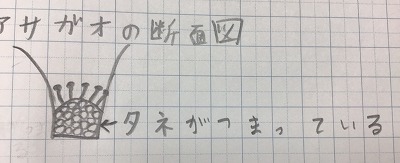 アサガオの断面図
タネがつまっている